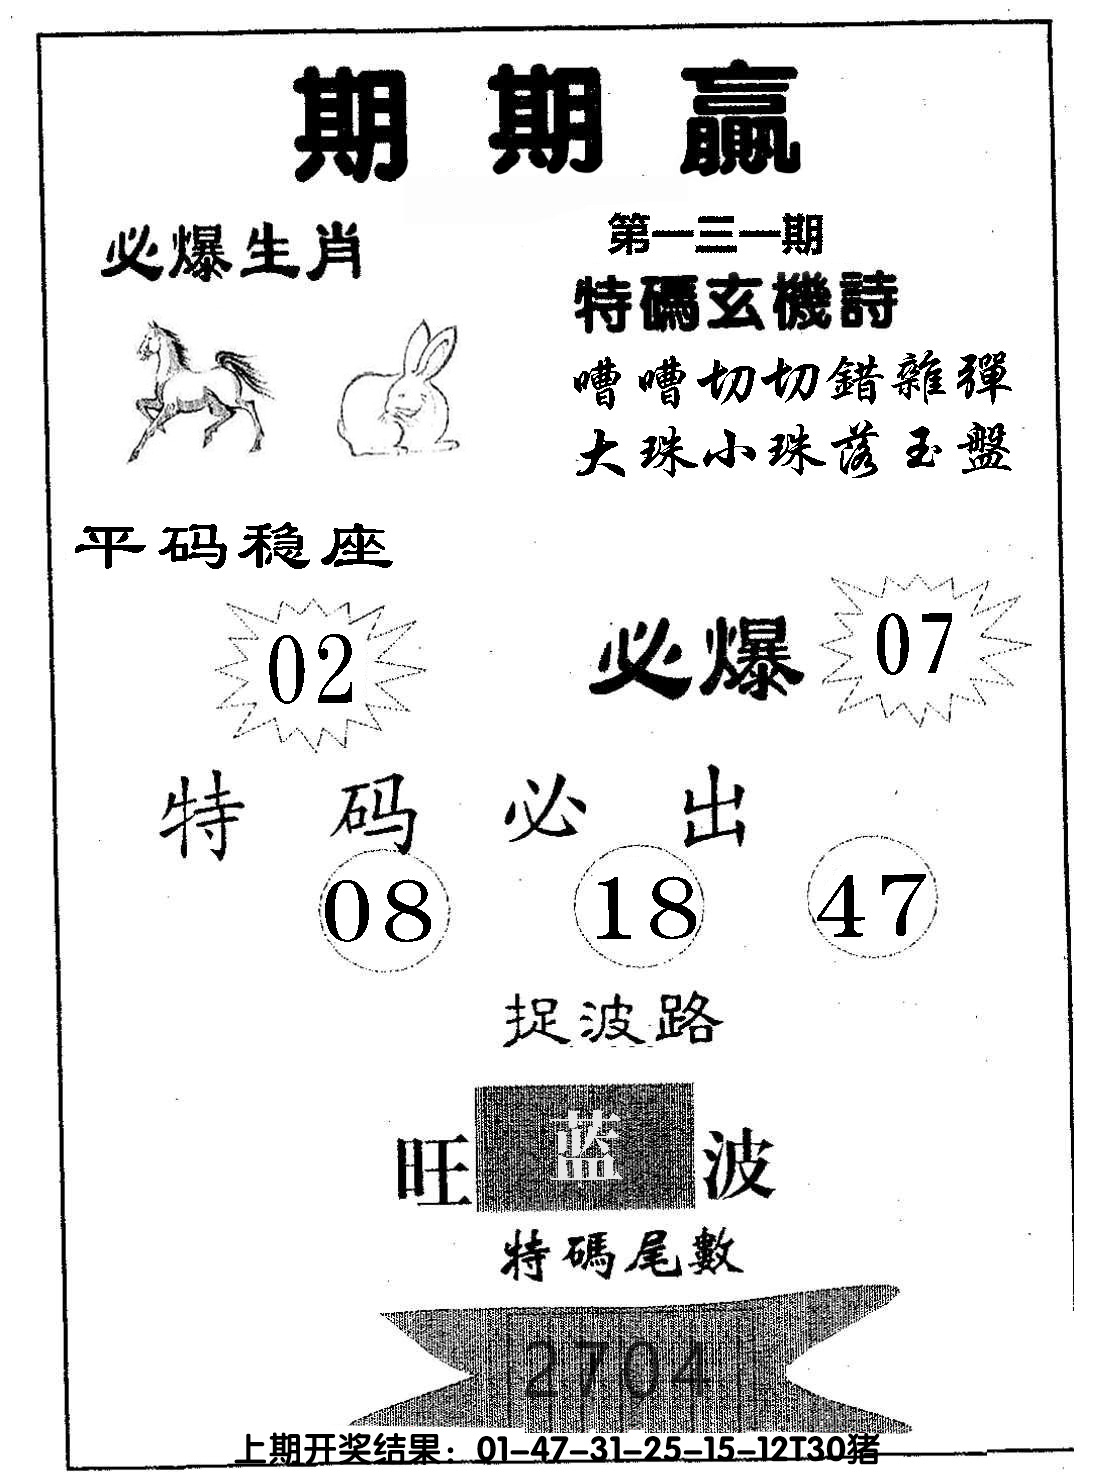 期期贏
必爆生肖
第一三一期
特碼玄機詩
嘈嘈切切錯雜彈
大珠小珠落玉盤
平码稳座
02
必爆 07
特码必出
08 18 47
捉波路
旺 蓝 波
特碼尾數
2704
上期开奖结果：01-47-31-25-15-12T30猪